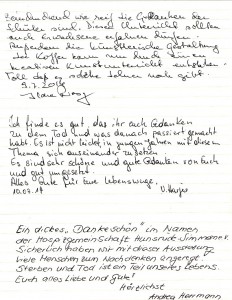 wie reif die Gedanken der
Schüler sind. Diesen Unterricht sollten
auch Erwachsene erfahren dürfen.
Außerdem die künstlerische Gestaltung
der Koffer kann nur durch
Kunstunterricht entstehen.
Toll daß es solche Lehrer noch gibt.
9.7.2014
Ich finde es gut das ihr euch Gedanken
zu dem Tod und was danach passiert gemacht
habt. Es ist nicht leicht in jungen Jahren mit diesem
Thema sich auseinander zu setzen.
Es sind sehr schöne und gute Gedanken von Euch
und gut umgesetzt.
Alles Gute für Eure Lebenswege.
10.07.14
Ein dickes „Dankeschön“ im Namen
der Hospizgemeinschaft Hunsrück Simmern e.
Sicherlich haben wir mit dieser Ausstellung
viele Menschen zum Nachdenken angeregt.
Sterben und Tod ist ein Teil unseres Lebens.
Euch alles Liebe und Gute!
Herzlichst
Andrea Herrmann